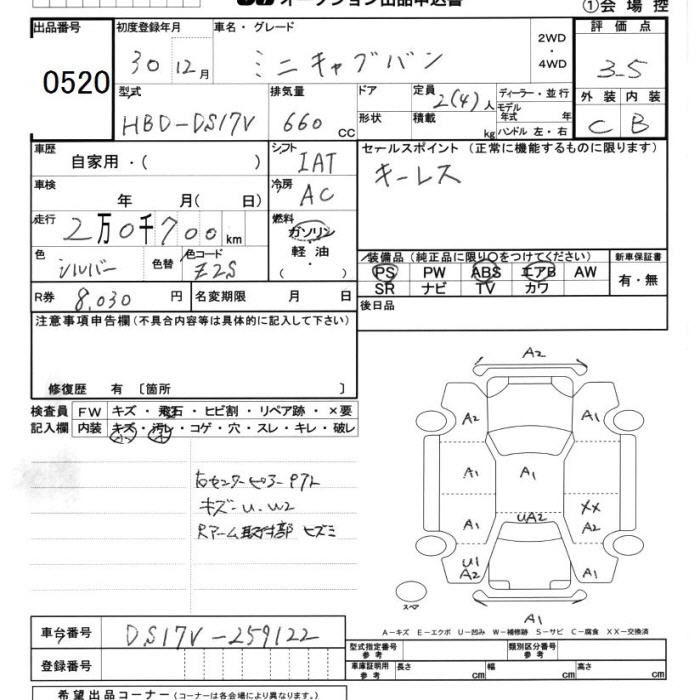 オークション出品申込書
①会場控
出品番号 0520
初度登録年月 30 12月
車名・グレード ミニキャブバン
2WD・4WD
評価点 3-5
型式 HBD-DS17V
排気量 660 CC
ドア
形状
定員 2(4)人
積載 kg
ディーラー・並行
モデル年式 年
ハンドル 左・右
外装 C
内装 B
車歴 自家用・( )
シフト IAT
セールスポイント (正常に機能するものに限ります)
キーレス
車検 年 月( 日)
冷房 AC
走行 2万0千700km
燃料 ガソリン・軽油・( )
色 シルバー
色替
色コード Z2S
装備品 (純正品に限り○をつけてください)
新車保証書 有・無
PS PW ABS エアB AW
SR ナビ TV カワ
R券 8,030 円
名変期限 月 日
後日品
注意事項申告欄(不具合内容等は具体的に記入して下さい)
修復歴 有 〔箇所 〕
検査員記入欄
FW キズ・飛石・ヒビ割・リペア跡・×要
内装 キズ・汚レ・コゲ・穴・スレ・キレ・破レ
右センターピラーアウト
キズ-U.W2
Rアーム取付部 ヒズミ
A2
A2 A1
A1 A1
UA2
XX
A1 A2
U1
A2 A1
スペア
A1
A-キズ E-エクボ U-凹み W-補修跡 S-サビ C-腐食 XX-交換済
車台番号 DS17V-259122
型式指定番号 参考
類別区分番号 参考
登録番号
車庫証明用 参考
長さ cm
幅 cm
高さ cm
希望出品コーナー (コーナーは各会場により異なります。)